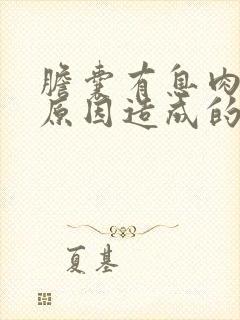 膽囊有息肉
原因造成的
夏基